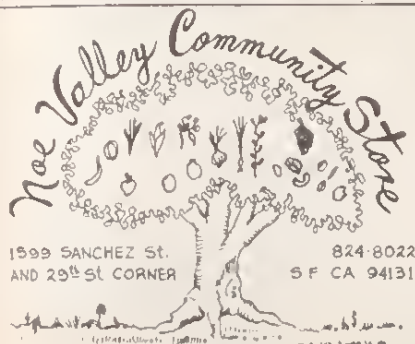 Noe Valley Community Store
1599 SANCHEZ St.
AND 29th St CORNER
824-8022
S F CA 94131